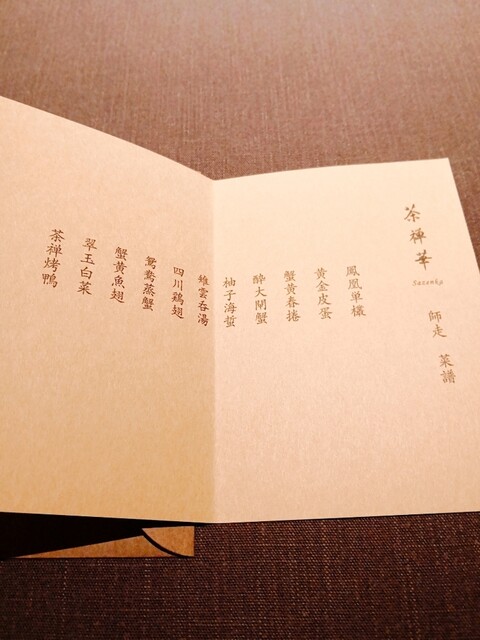 茶禅華
Sazenka
師走 菜譜
鳳凰単樅
黄金皮蛋
蟹黄春捲
酔大閘蟹
柚子海蜇
雉雲呑湯
四川鶏翅
鴛鴦蒸蟹
蟹黄魚翅
翠玉白菜
茶禅烤鴨